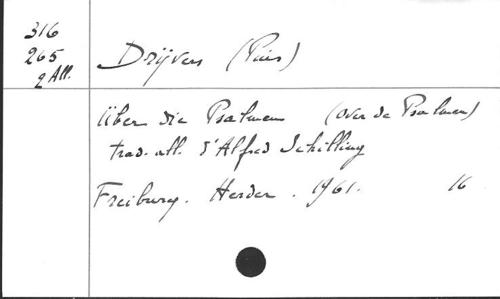 316
265
2 All.
Drijvers (Pius)
Über die Psalmen (Over de Psalmen)
trad. all. d'Alfred Schilling
Freiburg. Herder. 1961. 16